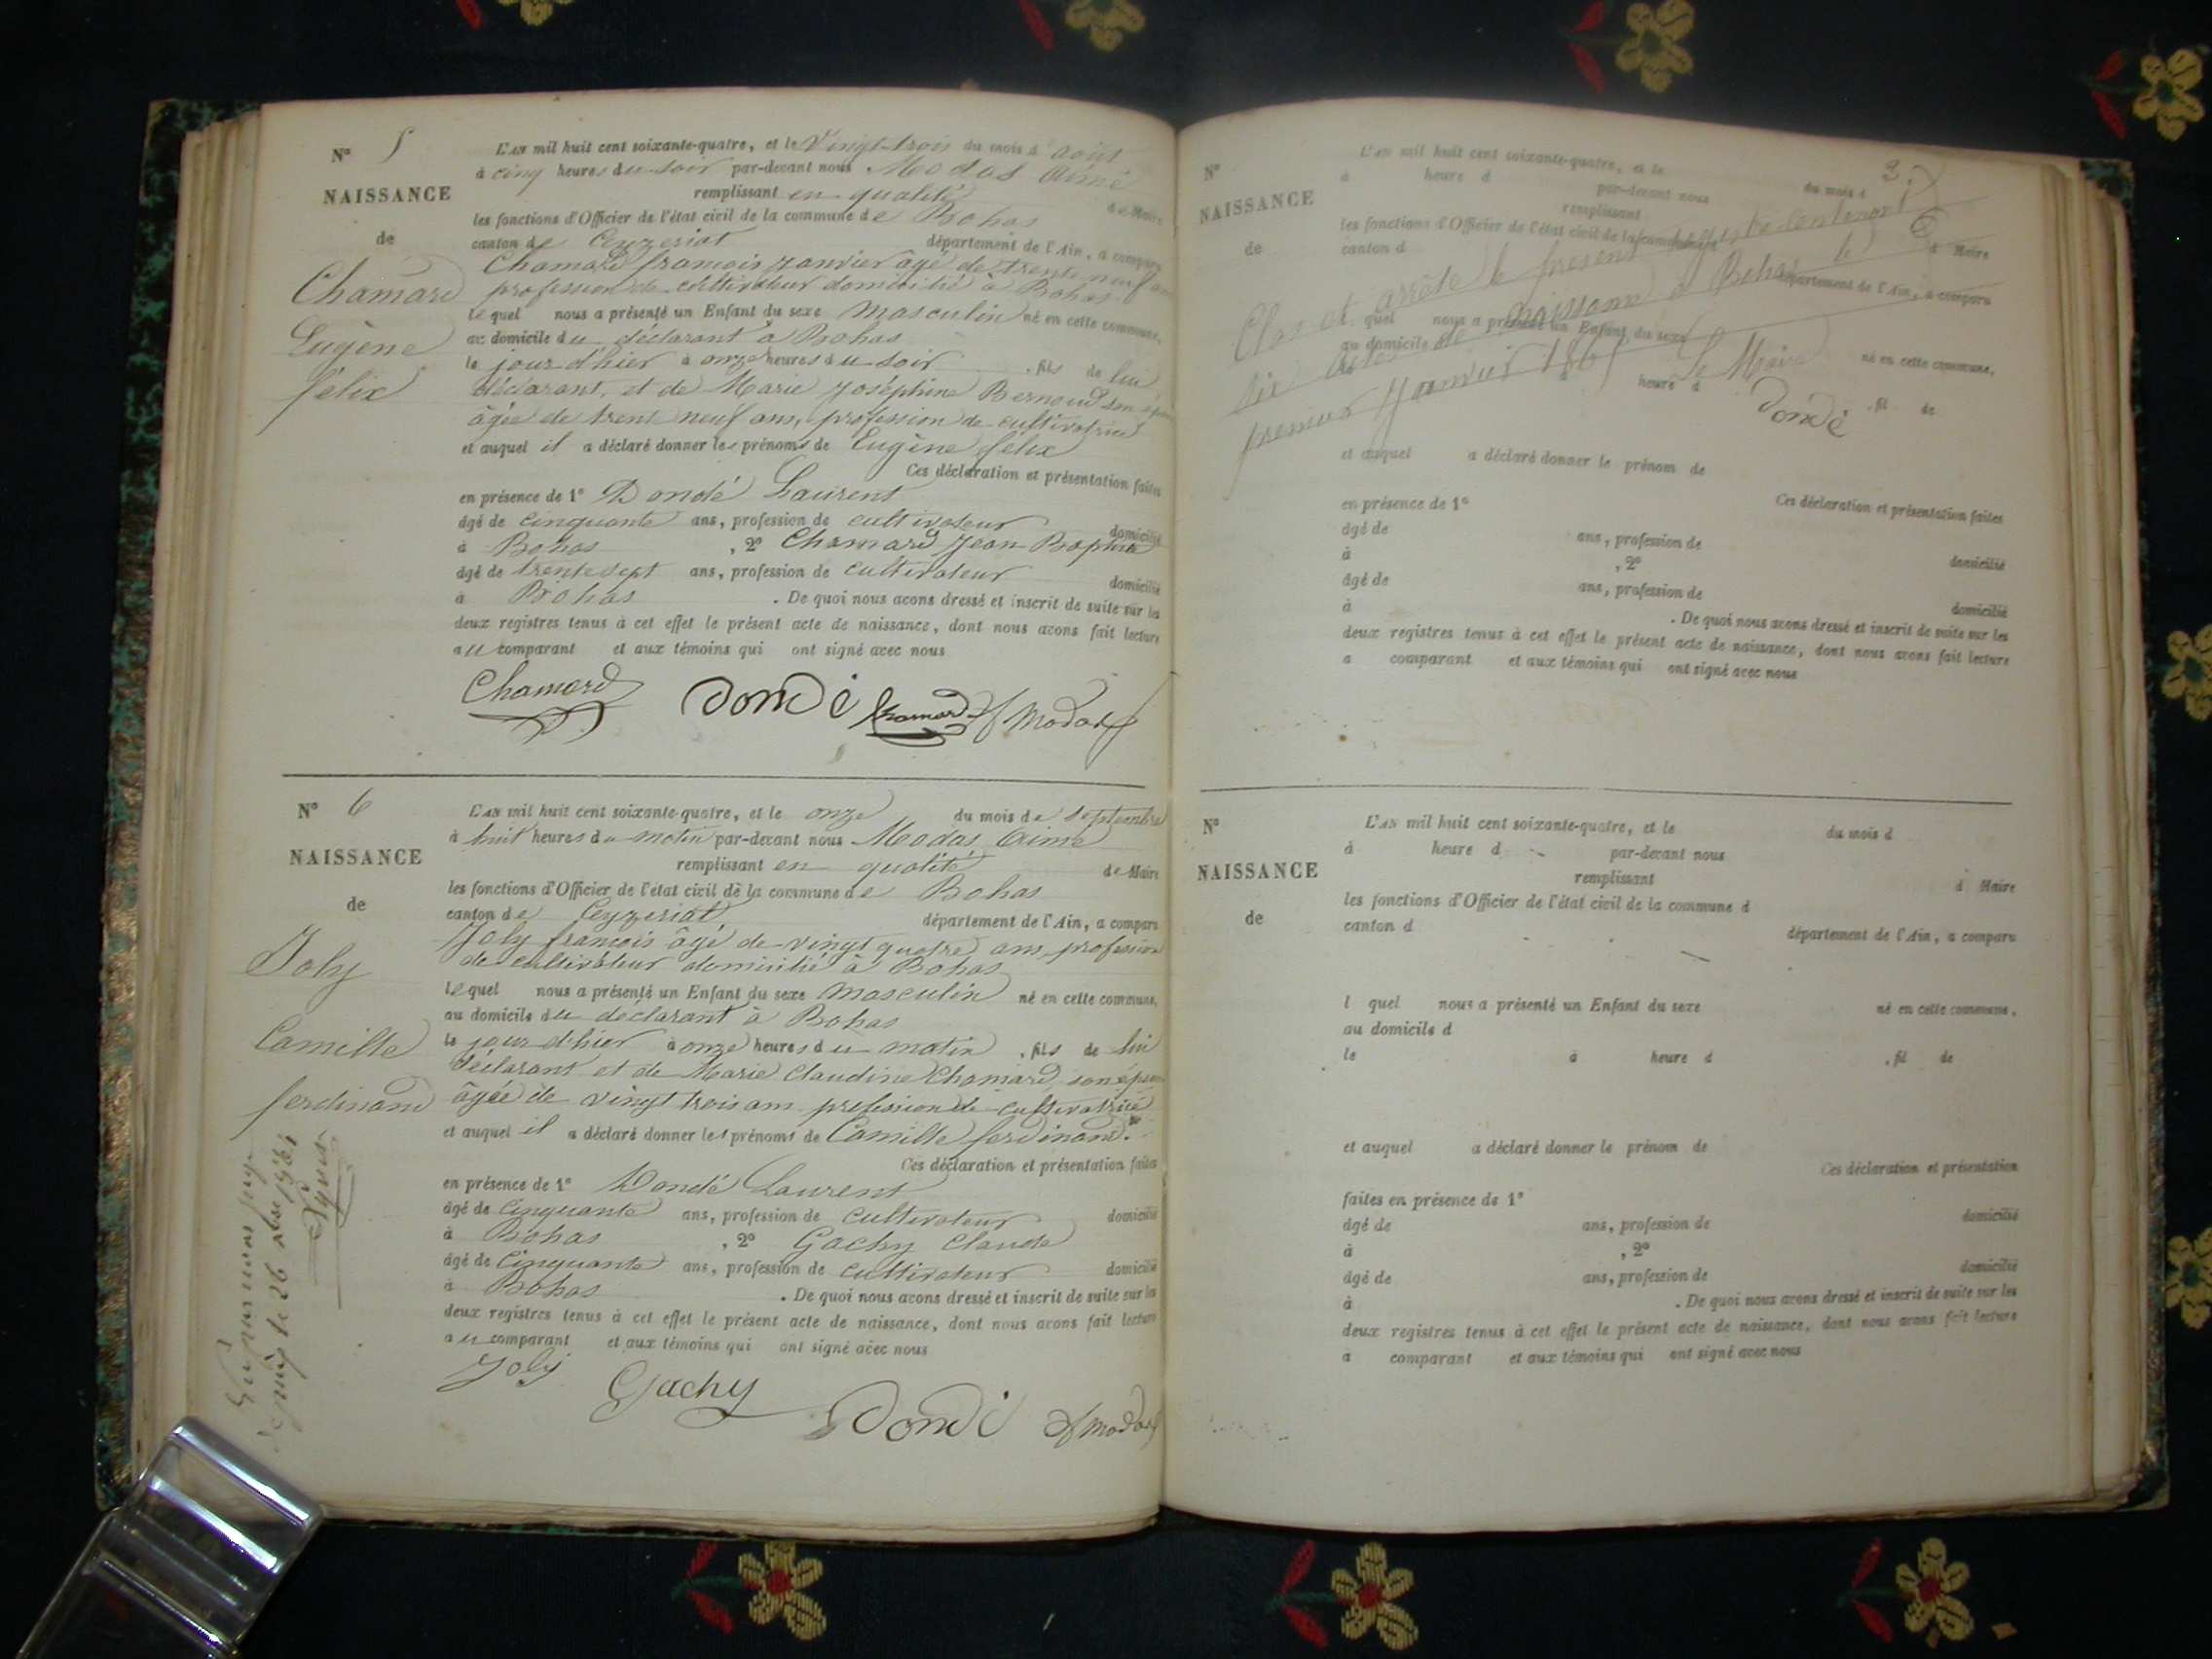 N° 5
NAISSANCE
de
Chamard
Eugène
félix
L'AN mil huit cent soixante-quatre, et le Vingt-trois du mois d'août
à cinq heures du soir par-devant nous Modas Aimé
remplissant en qualité de Maire
les fonctions d'Officier de l'état civil de la commune de Bohas
canton de Ceyzeriat département de l'Ain, a comparu
Chamard françois janvier agé de trente neuf ans
profession de cultivateur domicilié à Bohas
lequel nous a présenté un Enfant du sexe masculin né en cette commune,
au domicile du déclarant à Bohas
le jour d'hier à onze heures du soir , fils de lui
déclarant, et de Marie Joséphine Bernoud son épouse
âgée de trent neuf ans, profession de cultivatrice
et auquel il a déclaré donner les prénoms de Eugène félix
Ces déclaration et présentation faites
en présence de 1° Dondé Laurent
âgé de cinquante ans, profession de cultivateur domicilié
à Bohas , 2° Chamard Jean Baptiste
âgé de trente sept ans, profession de cultivateur domicilié
à Bohas . De quoi nous avons dressé et inscrit de suite sur les
deux registres tenus à cet effet le présent acte de naissance, dont nous avons fait lecture
au comparant et aux témoins qui ont signé avec nous
Chamard Dondé Chamard Modas
N° 6
NAISSANCE
de
Joly
Camille
ferdinand
L'AN mil huit cent soixante-quatre, et le onze du mois de septembre
à huit heures du matin par-devant nous Modas Aimé
remplissant en qualité de Maire
les fonctions d'Officier de l'état civil de la commune de Bohas
canton de Ceyzeriat département de l'Ain, a comparu
Joly françois âgé de vingt quatre ans, profession
de cultivateur domicilié à Bohas
lequel nous a présenté un Enfant du sexe masculin né en cette commune,
au domicile du déclarant à Bohas
le jour d'hier à onze heures du matin , fils de lui
déclarant et de Marie Claudine Chamard, son épouse
âgée de vingt trois ans profession de cultivatrice
et auquel il a déclaré donner les prénoms de Camille ferdinand.
Ces déclaration et présentation faites
en présence de 1° Dondé Laurent
âgé de Cinquante ans, profession de cultivateur domicilié
à Bohas , 2° Gachy Claude
âgé de Cinquante ans, profession de cultivateur domicilié
à Bohas . De quoi nous avons dressé et inscrit de suite sur les
deux registres tenus à cet effet le présent acte de naissance, dont nous avons fait lecture
au comparant et aux témoins qui ont signé avec nous
Joly Gachy Dondé Modas
le 26
N°
NAISSANCE
de
L'AN mil huit cent soixante-quatre, et le du mois d
à heure d par-devant nous
remplissant d Maire
les fonctions d'Officier de l'état civil de la commune d
canton d département de l'Ain, a comparu
Clos et arrêté le présent registre contenant
six actes de naissance à Bohas le
premier Janvier 1865 Le Maire
Dondé
l quel nous a présenté un Enfant du sexe né en cette commune,
au domicile d
heure d , fil de
et auquel a déclaré donner le prénom de
Ces déclaration et présentation faites
en présence de 1°
âgé de ans, profession de domicilié
à , 2°
âgé de ans, profession de domicilié
à . De quoi nous avons dressé et inscrit de suite sur les
deux registres tenus à cet effet le présent acte de naissance, dont nous avons fait lecture
a comparant et aux témoins qui ont signé avec nous
N°
NAISSANCE
de
L'AN mil huit cent soixante-quatre, et le du mois d
à heure d par-devant nous
remplissant d Maire
les fonctions d'Officier de l'état civil de la commune d
canton d département de l'Ain, a comparu
l quel nous a présenté un Enfant du sexe né en cette commune,
au domicile d
le à heure d , fil de
et auquel a déclaré donner le prénom de
Ces déclaration et présentation
faites en présence de 1°
âgé de ans, profession de domicilié
à , 2°
âgé de ans, profession de domicilié
à . De quoi nous avons dressé et inscrit de suite sur les
deux registres tenus à cet effet le présent acte de naissance, dont nous avons fait lecture
a comparant et aux témoins qui ont signé avec nous